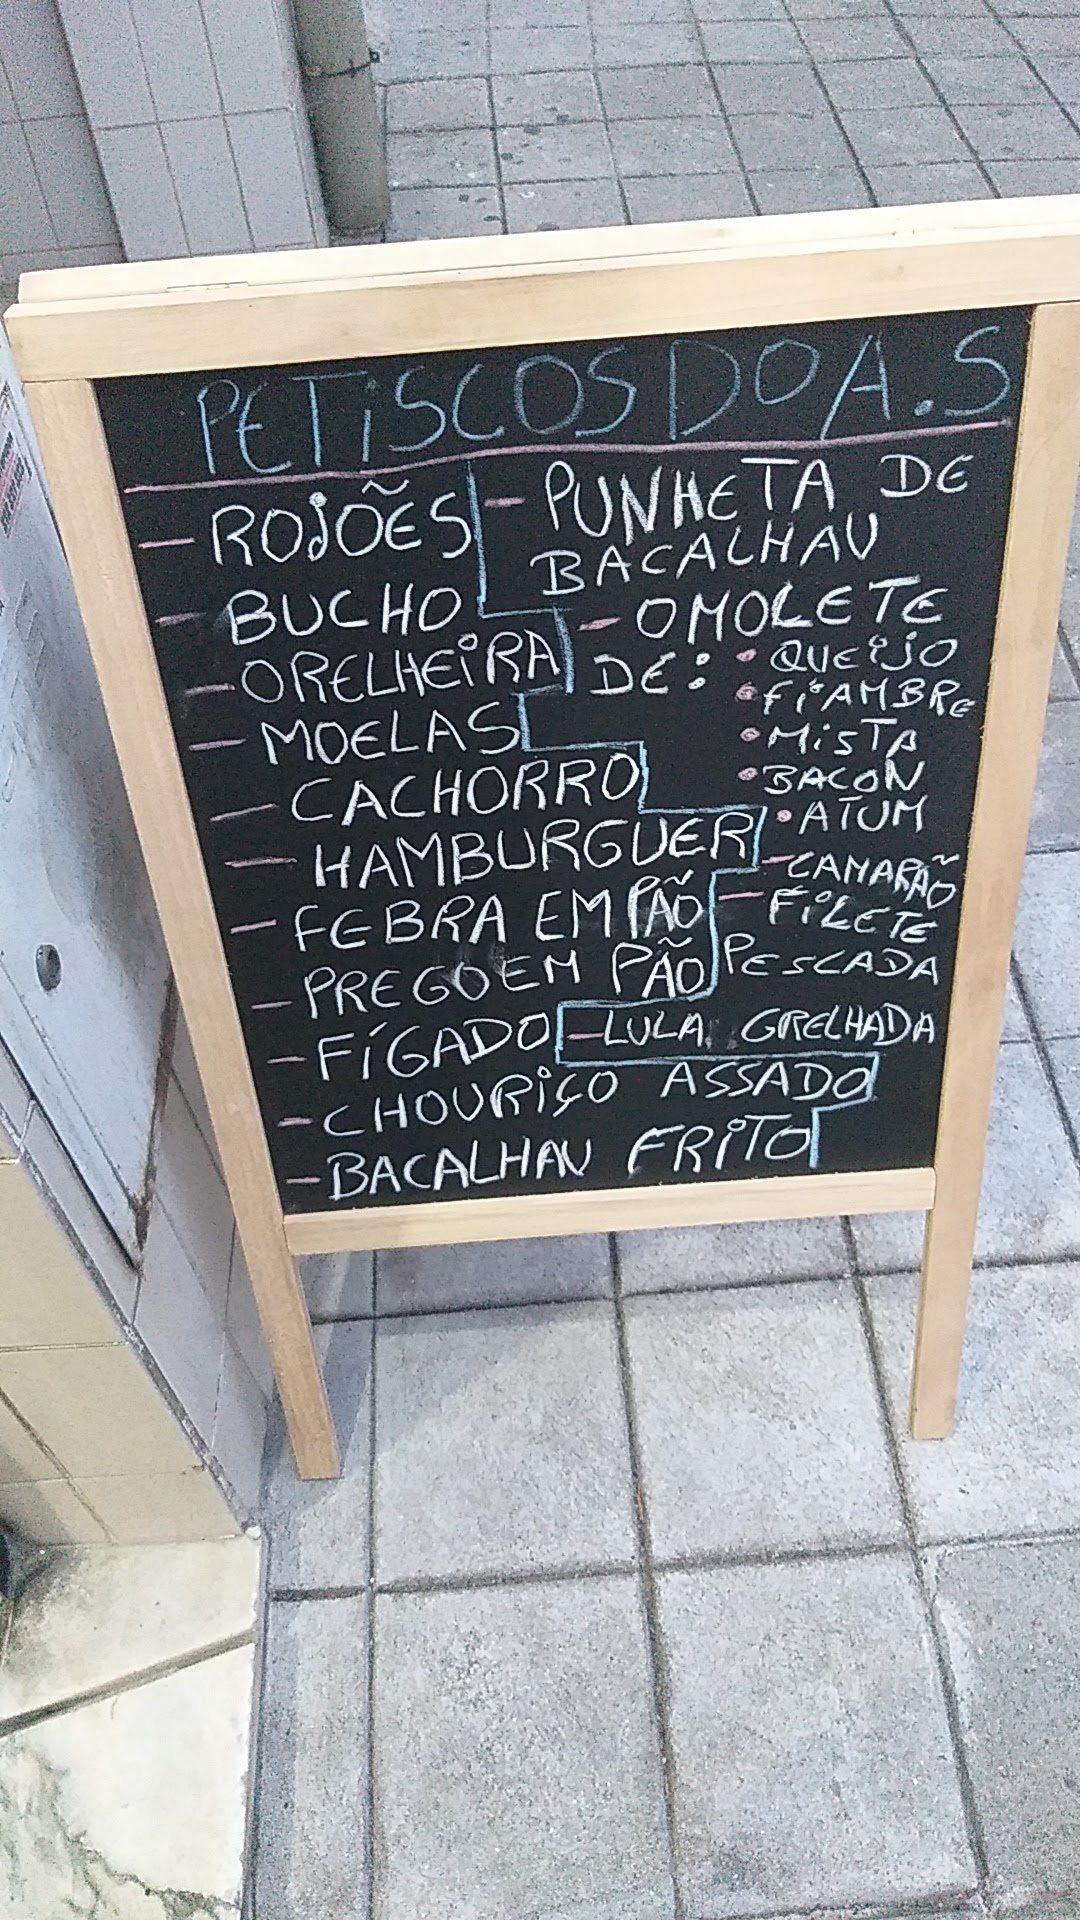 PETiSCOS DO A.S
- ROJÕES
- BUCHO
- ORELHEiRA
- MOELAS
- CACHORRO
- HAMBURGUER
- FEBRA EM PÃO
- PREGO EM PÃO
- FÍGADO
- CHOURiÇO ASSADO
- BACALHAU FRiTO
- PUNHETA DE
BACALHAU
- OMOLETE
DE: • QUEiJO
• FiAMBRE
• MiSTA
• BACON
• ATUM
- CAMARÃO
- FiLETE
PESCADA
- LULA GRELHADA